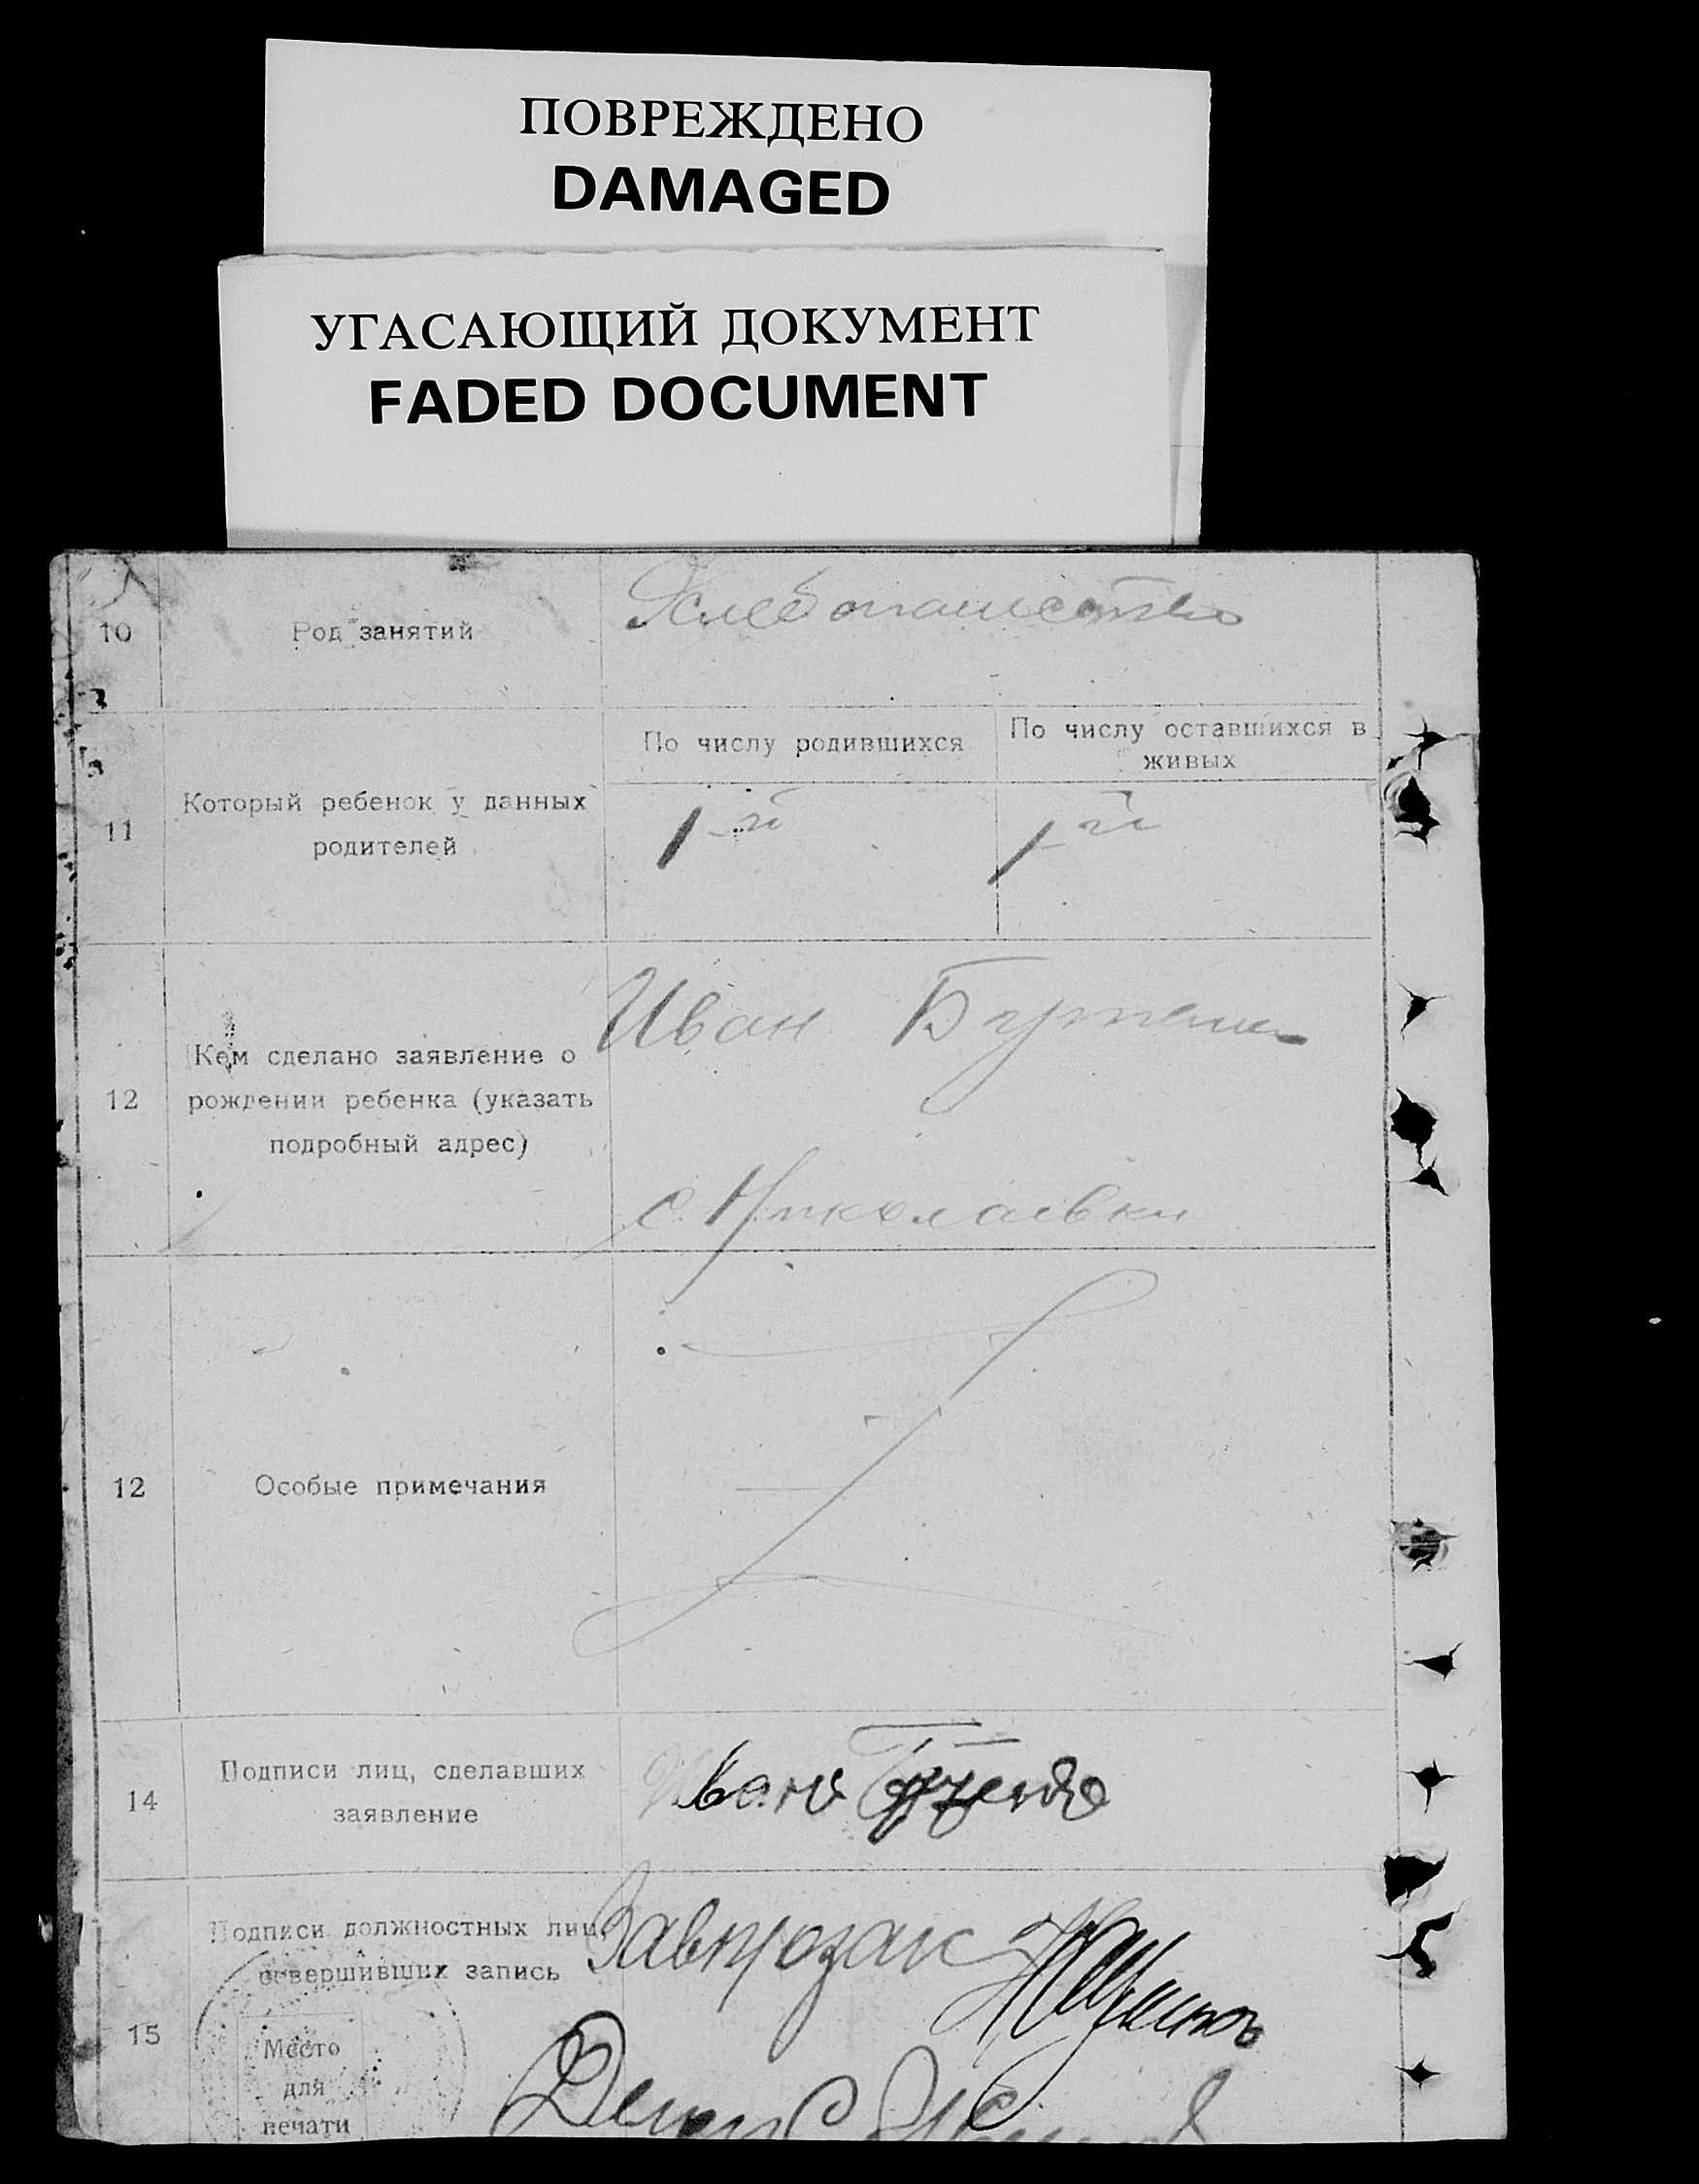 ПОВРЕЖДЕНО
DAMAGED
УГАСАЮЩИЙ ДОКУМЕНТ
FADED DOCUMENT
10 Род занятий Хлебопашество
По числу родившихся По числу оставшихся в живых
11 Который ребенок у данных
родителей
1-й 1-й
Иван
12 Кем сделано заявление о
рождении ребенка (указать
подробный адрес)
с. Николаевки
12 Особые примечания
14 Подписи лиц, сделавших
заявление
Иван
15 Подписи должностных лиц,
совершивших запись
Завпрозаг
Место
для
печати